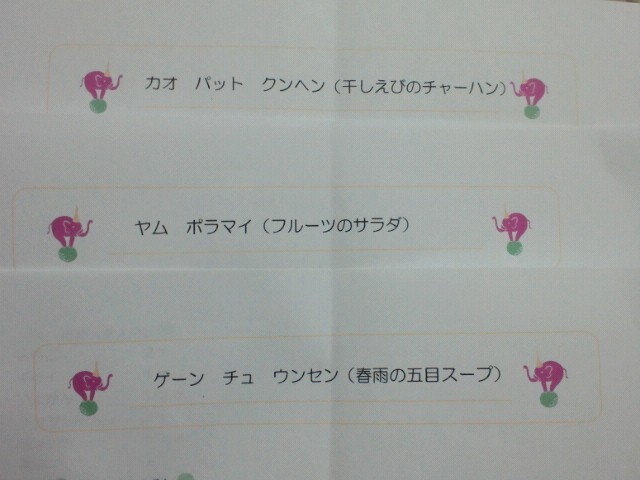 カオ　パット　クンヘン（干しえびのチャーハン）
ヤム　ポラマイ（フルーツのサラダ）
ゲーン　チュ　ウンセン（春雨の五目スープ）